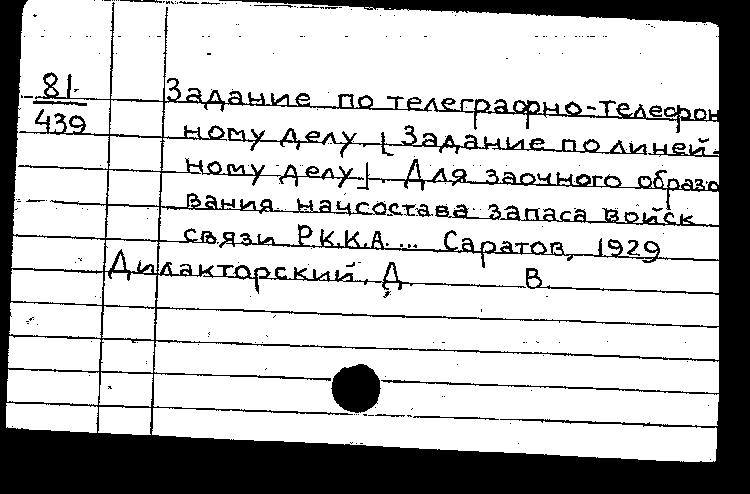 81
439
Задание по телеграфно-телефон
ному делу. [Задание по линей-
ному делу]. Для заочного образо
вания начсостава запаса войск
связи Р.К.К.А.... Саратов, 1929
Дилакторский, Д. В.